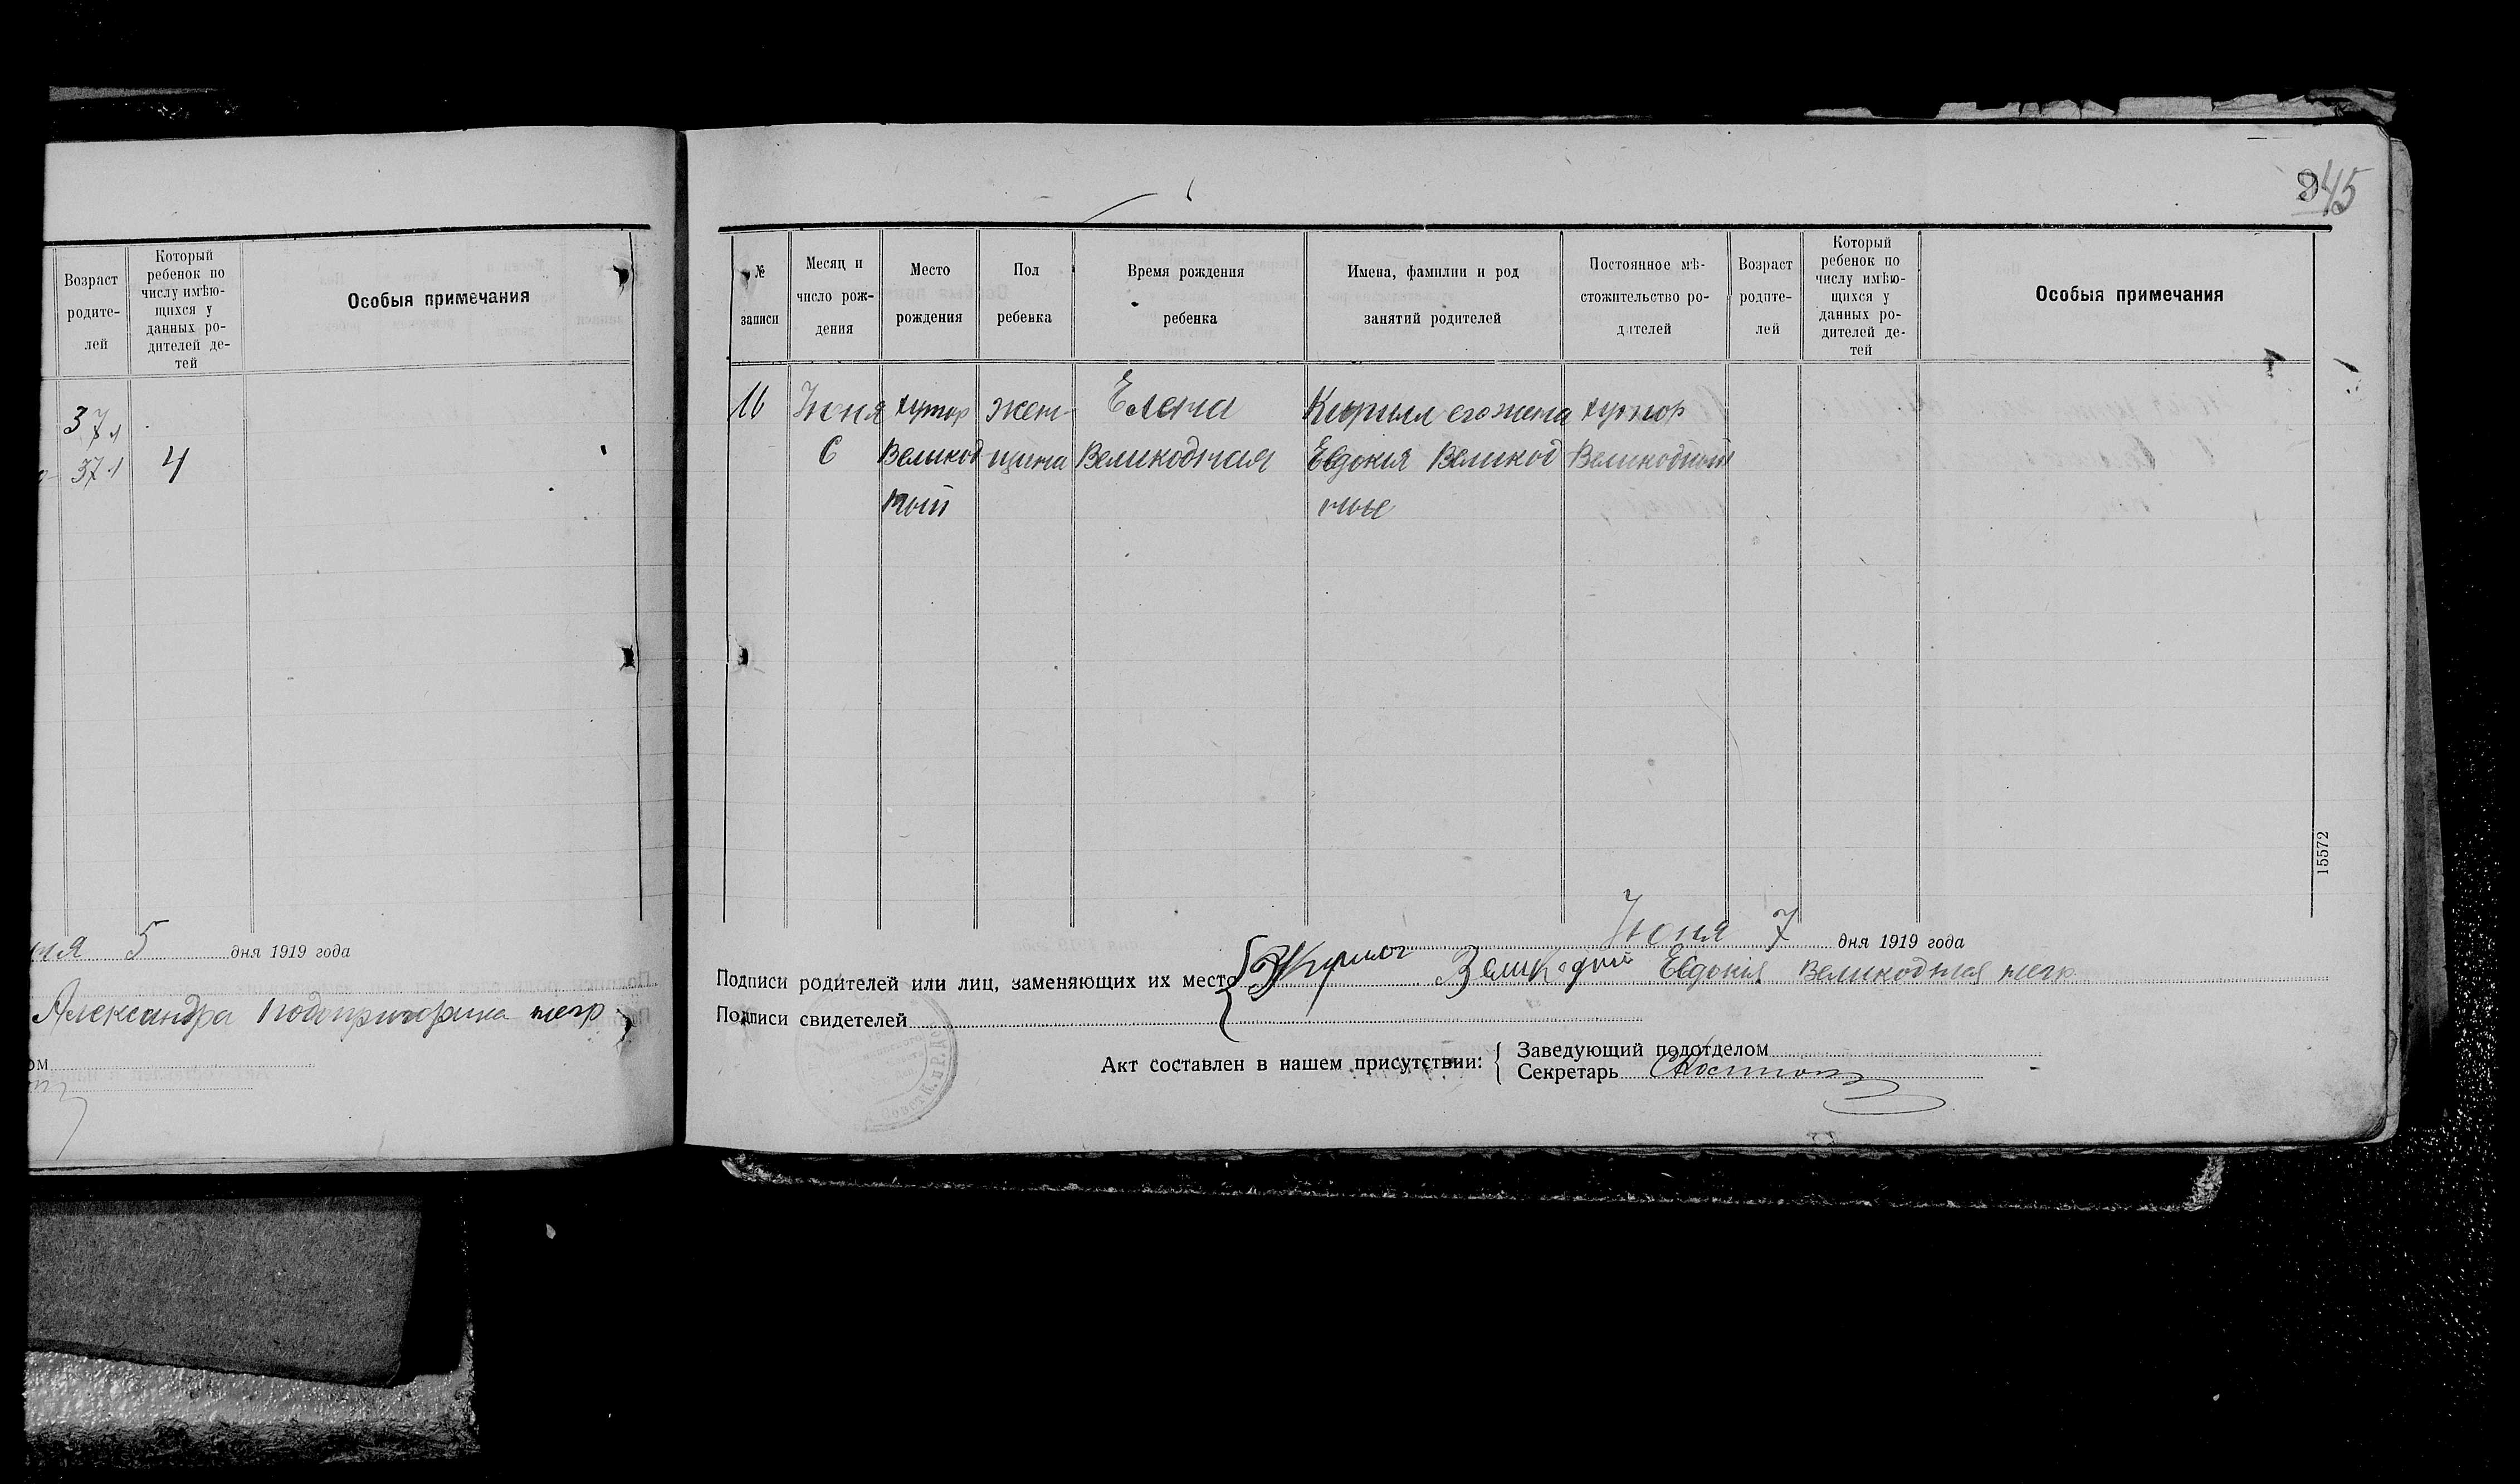 Возраст родите- лей
Который ребенок по числу имѣю- щихся у данных ро- дителей де- тей
Особыя примечания
37
37 4
5 дня 1919 года
Александра негр
845
№ записи
Месяц и число рож- дения
Место рождения
Пол ребенка
Время рождения ребенка
Имена, фамилии и род занятий родителей
Постоянное мѣ- стожительство ро- дителей
Возраст родите- лей
Который ребенок по числу имѣю- щихся у данных ро- дителей де- тей
Особыя примечания
Июня хутор жен- Елена Кирилл его жена хутор
6 Великод щина Великодная Евдокия Великод Великодный
ный ные
15572
Июня 7 дня 1919 года
Подписи родителей или лиц, заменяющих их место Великодный Евдокія Великодная негр
Подписи свидетелей
Акт составлен в нашем присутствии:
Заведующий подотделом
Секретарь